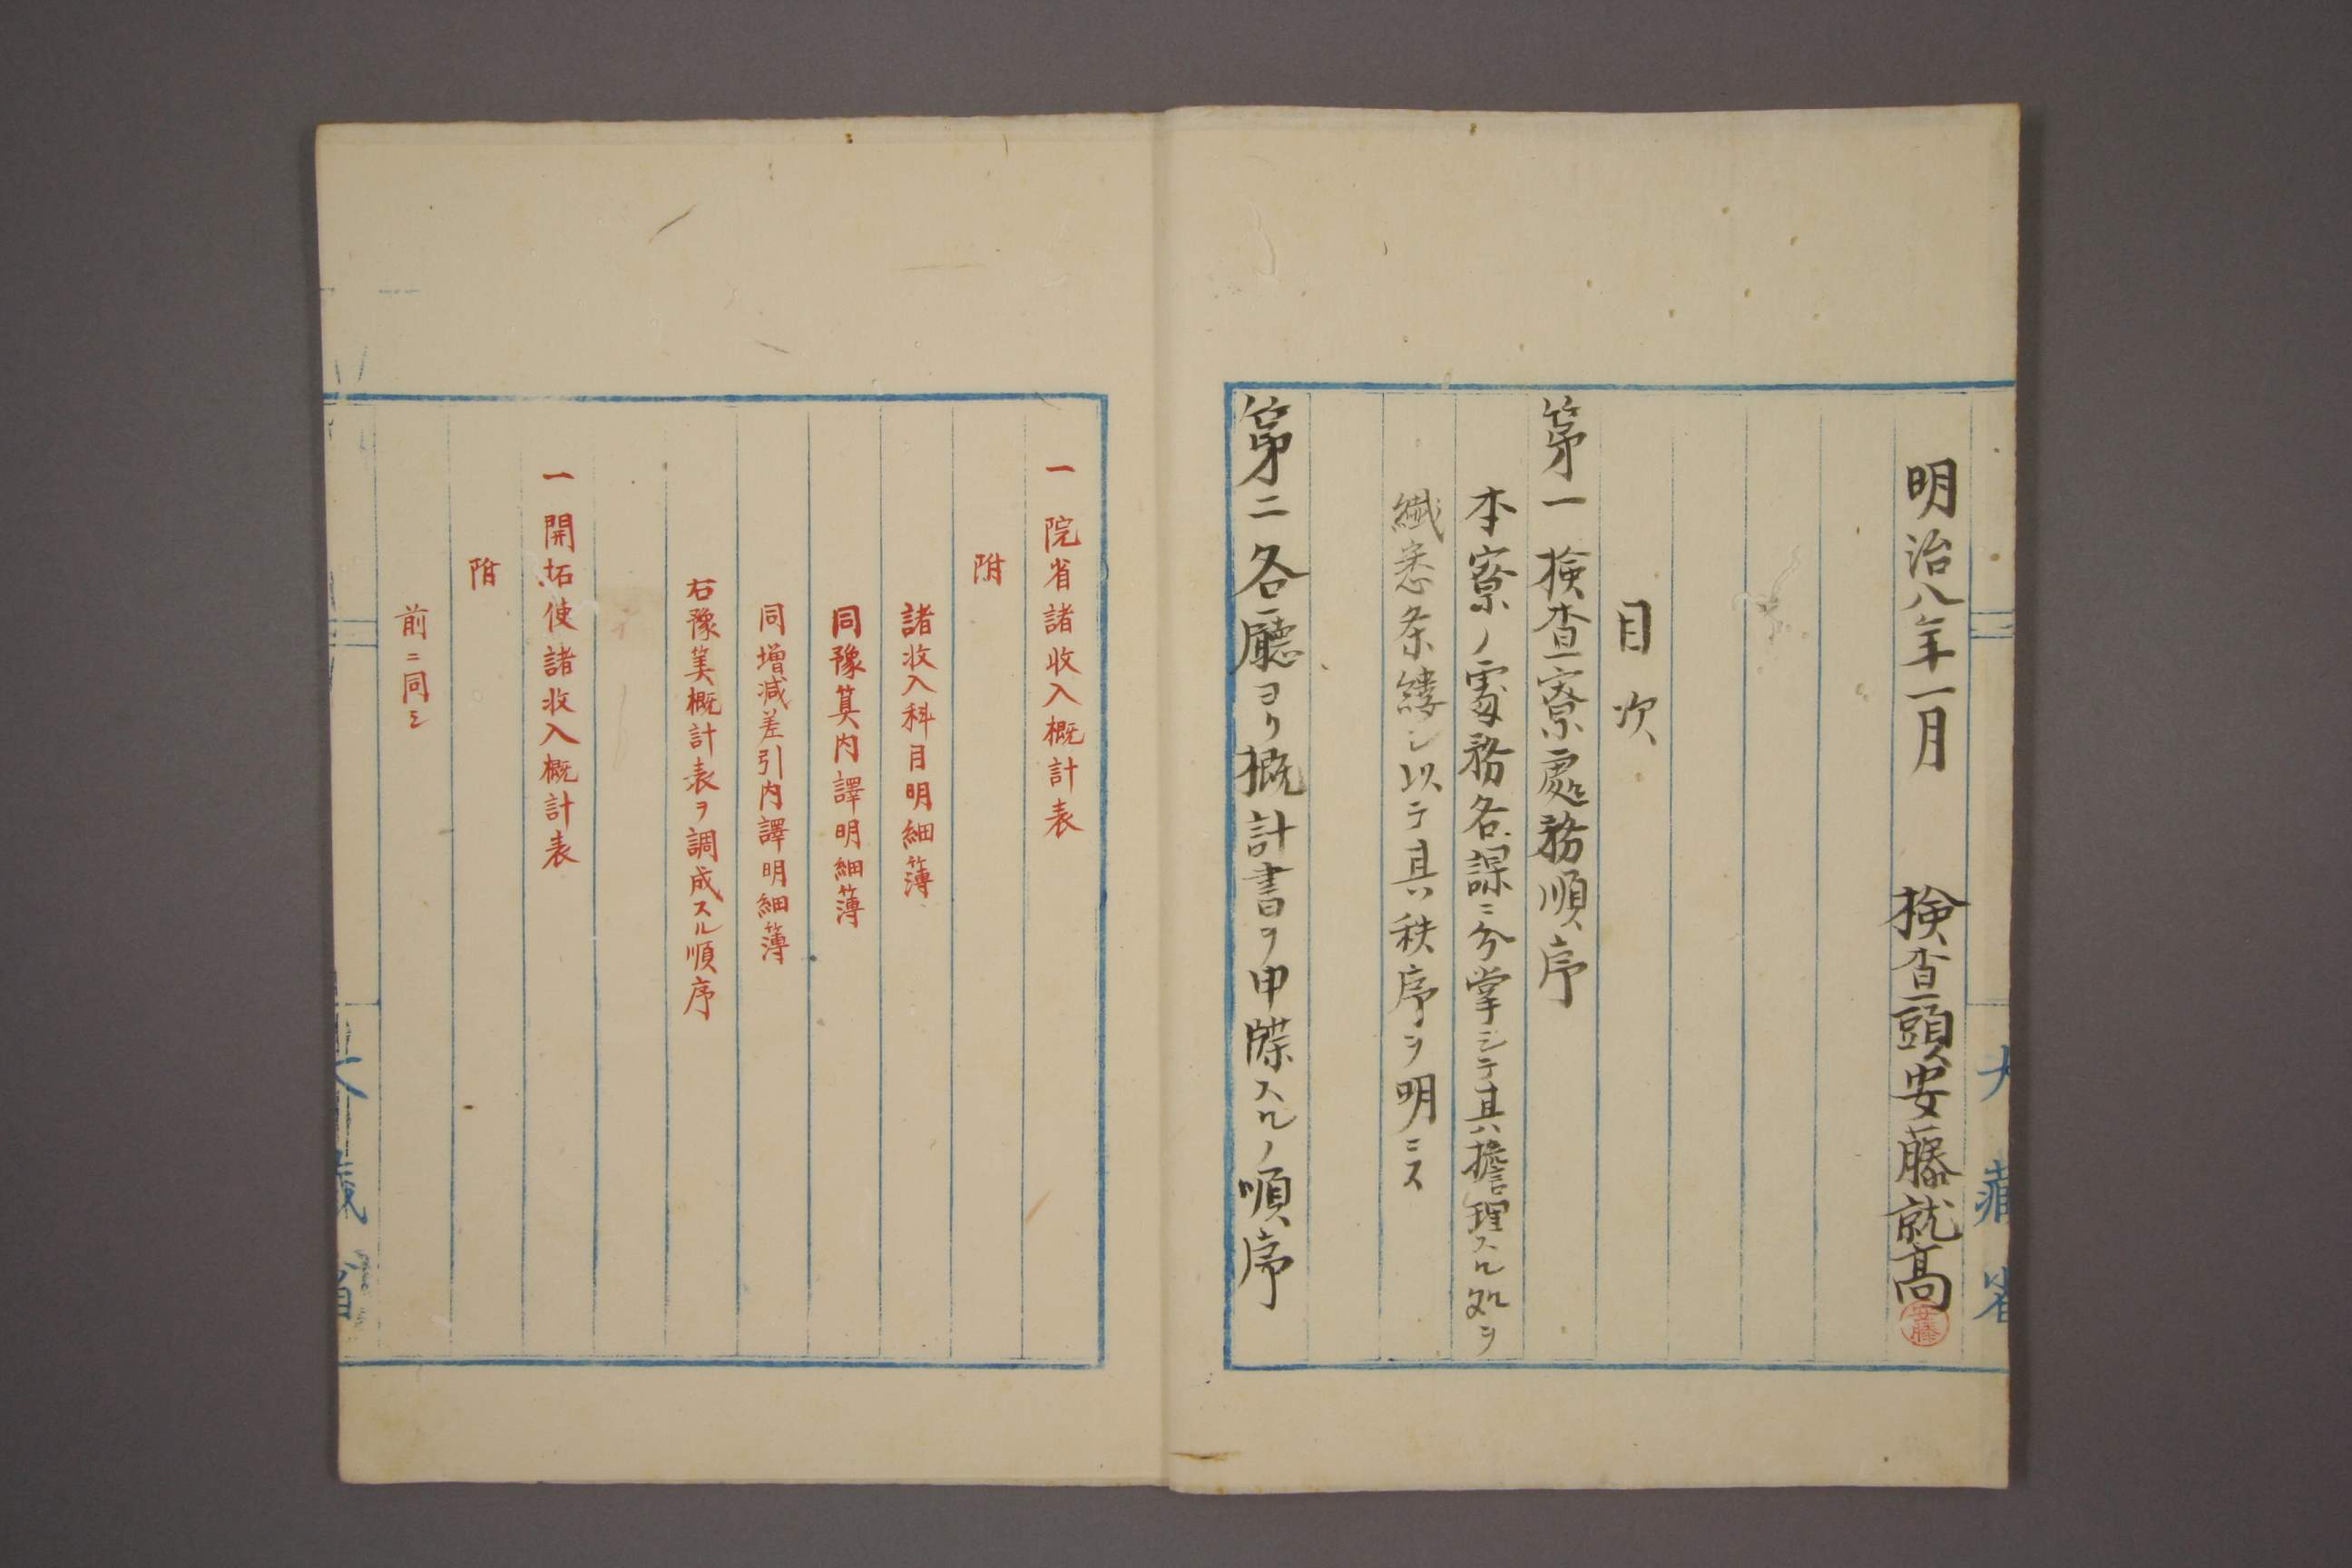 明治八年一月 検査頭安藤就高
安藤
大藏省
目次
第一 検査寮處務順序
本寮ノ處務各課ニ分掌シテ其擔理スル処ヲ
繊悉条縷シ以テ其秩序ヲ明ニス
第二 各廳ヨリ概計書ヲ申牒スルノ順序
一 院省諸收入概計表
附
諸收入科目明細簿
同豫算内譯明細簿
同増減差引内譯明細簿
右豫算概計表ヲ調成スル順序
一 開拓使諸收入概計表
附
前ニ同シ
大藏省